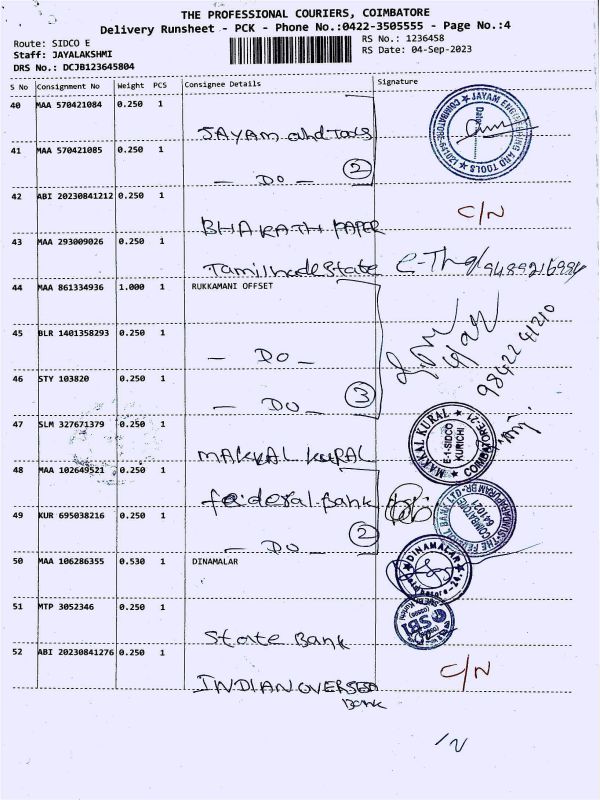 THE PROFESSIONAL COURIERS, COIMBATORE
Delivery Runsheet - PCK - Phone No.:0422-3505555 - Page No.:4
Route: SIDCO E
RS No.: 1236458
Staff: JAYALAKSHMI
RS Date: 04-Sep-2023
DRS No.: DCJB123645804
S No Consignment No Weight PCS Consignee Details Signature
40 MAA 570421084 0.250 1 JAYAM and Tools
41 MAA 570421085 0.250 1 - DO - 2
JAYAM ENGINEERING AND TOOLS COIMBATORE
42 ABI 20230841212 0.250 1 BHARATH PAPER C/N
43 MAA 293009026 0.250 1 Tamilnade State
44 MAA 861334936 1.000 1 RUKKAMANI OFFSET
45 BLR 1401358293 0.250 1 - DO -
9842241210
46 STY 103820 0.250 1 - DO - 3
47 SLM 327671379 0.250 1 MAKKAL KURAL
MAKKAL KURAL COIMBATORE-21
E-1-SIDCO
KURICHI
48 MAA 102649521 0.250 1 federal Bank
49 KUR 695038216 0.250 1 - DO - 2
COIMBATORE
641021
50 MAA 106286355 0.530 1 DINAMALAR
DINAMALAR
51 MTP 3052346 0.250 1 State Bank
SBI
52 ABI 20230841276 0.250 1 INDIAN OVERSEA Bank C/N